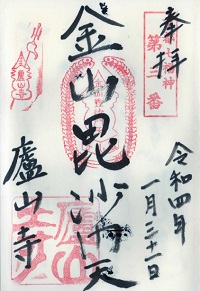 奉拝
第三番
令和四年
一月三十一日
金山毘沙門天
廬山寺